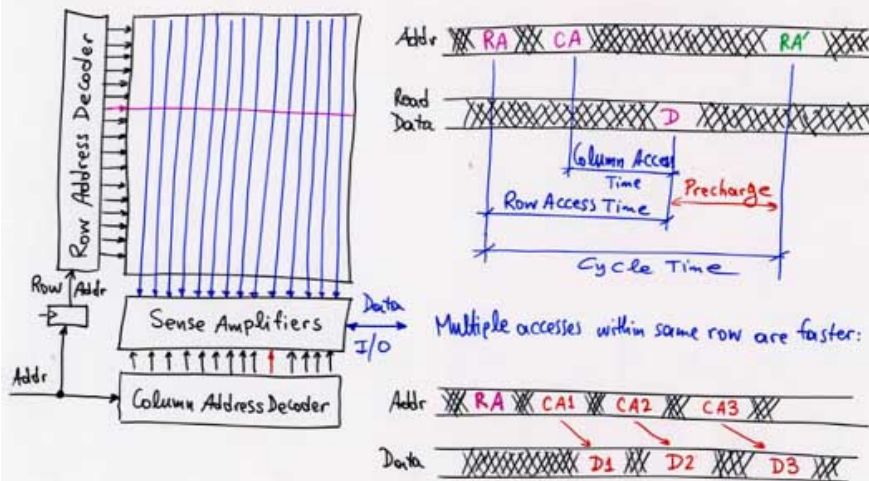 Row Address Decoder
Row Addr
Addr
Sense Amplifiers
Data
I/O
Column Address Decoder
Addr RA CA RA'
Read Data D
Column Access Time
Row Access Time
Precharge
Cycle Time
Multiple accesses within same row are faster:
Addr RA CA1 CA2 CA3
Data D1 D2 D3